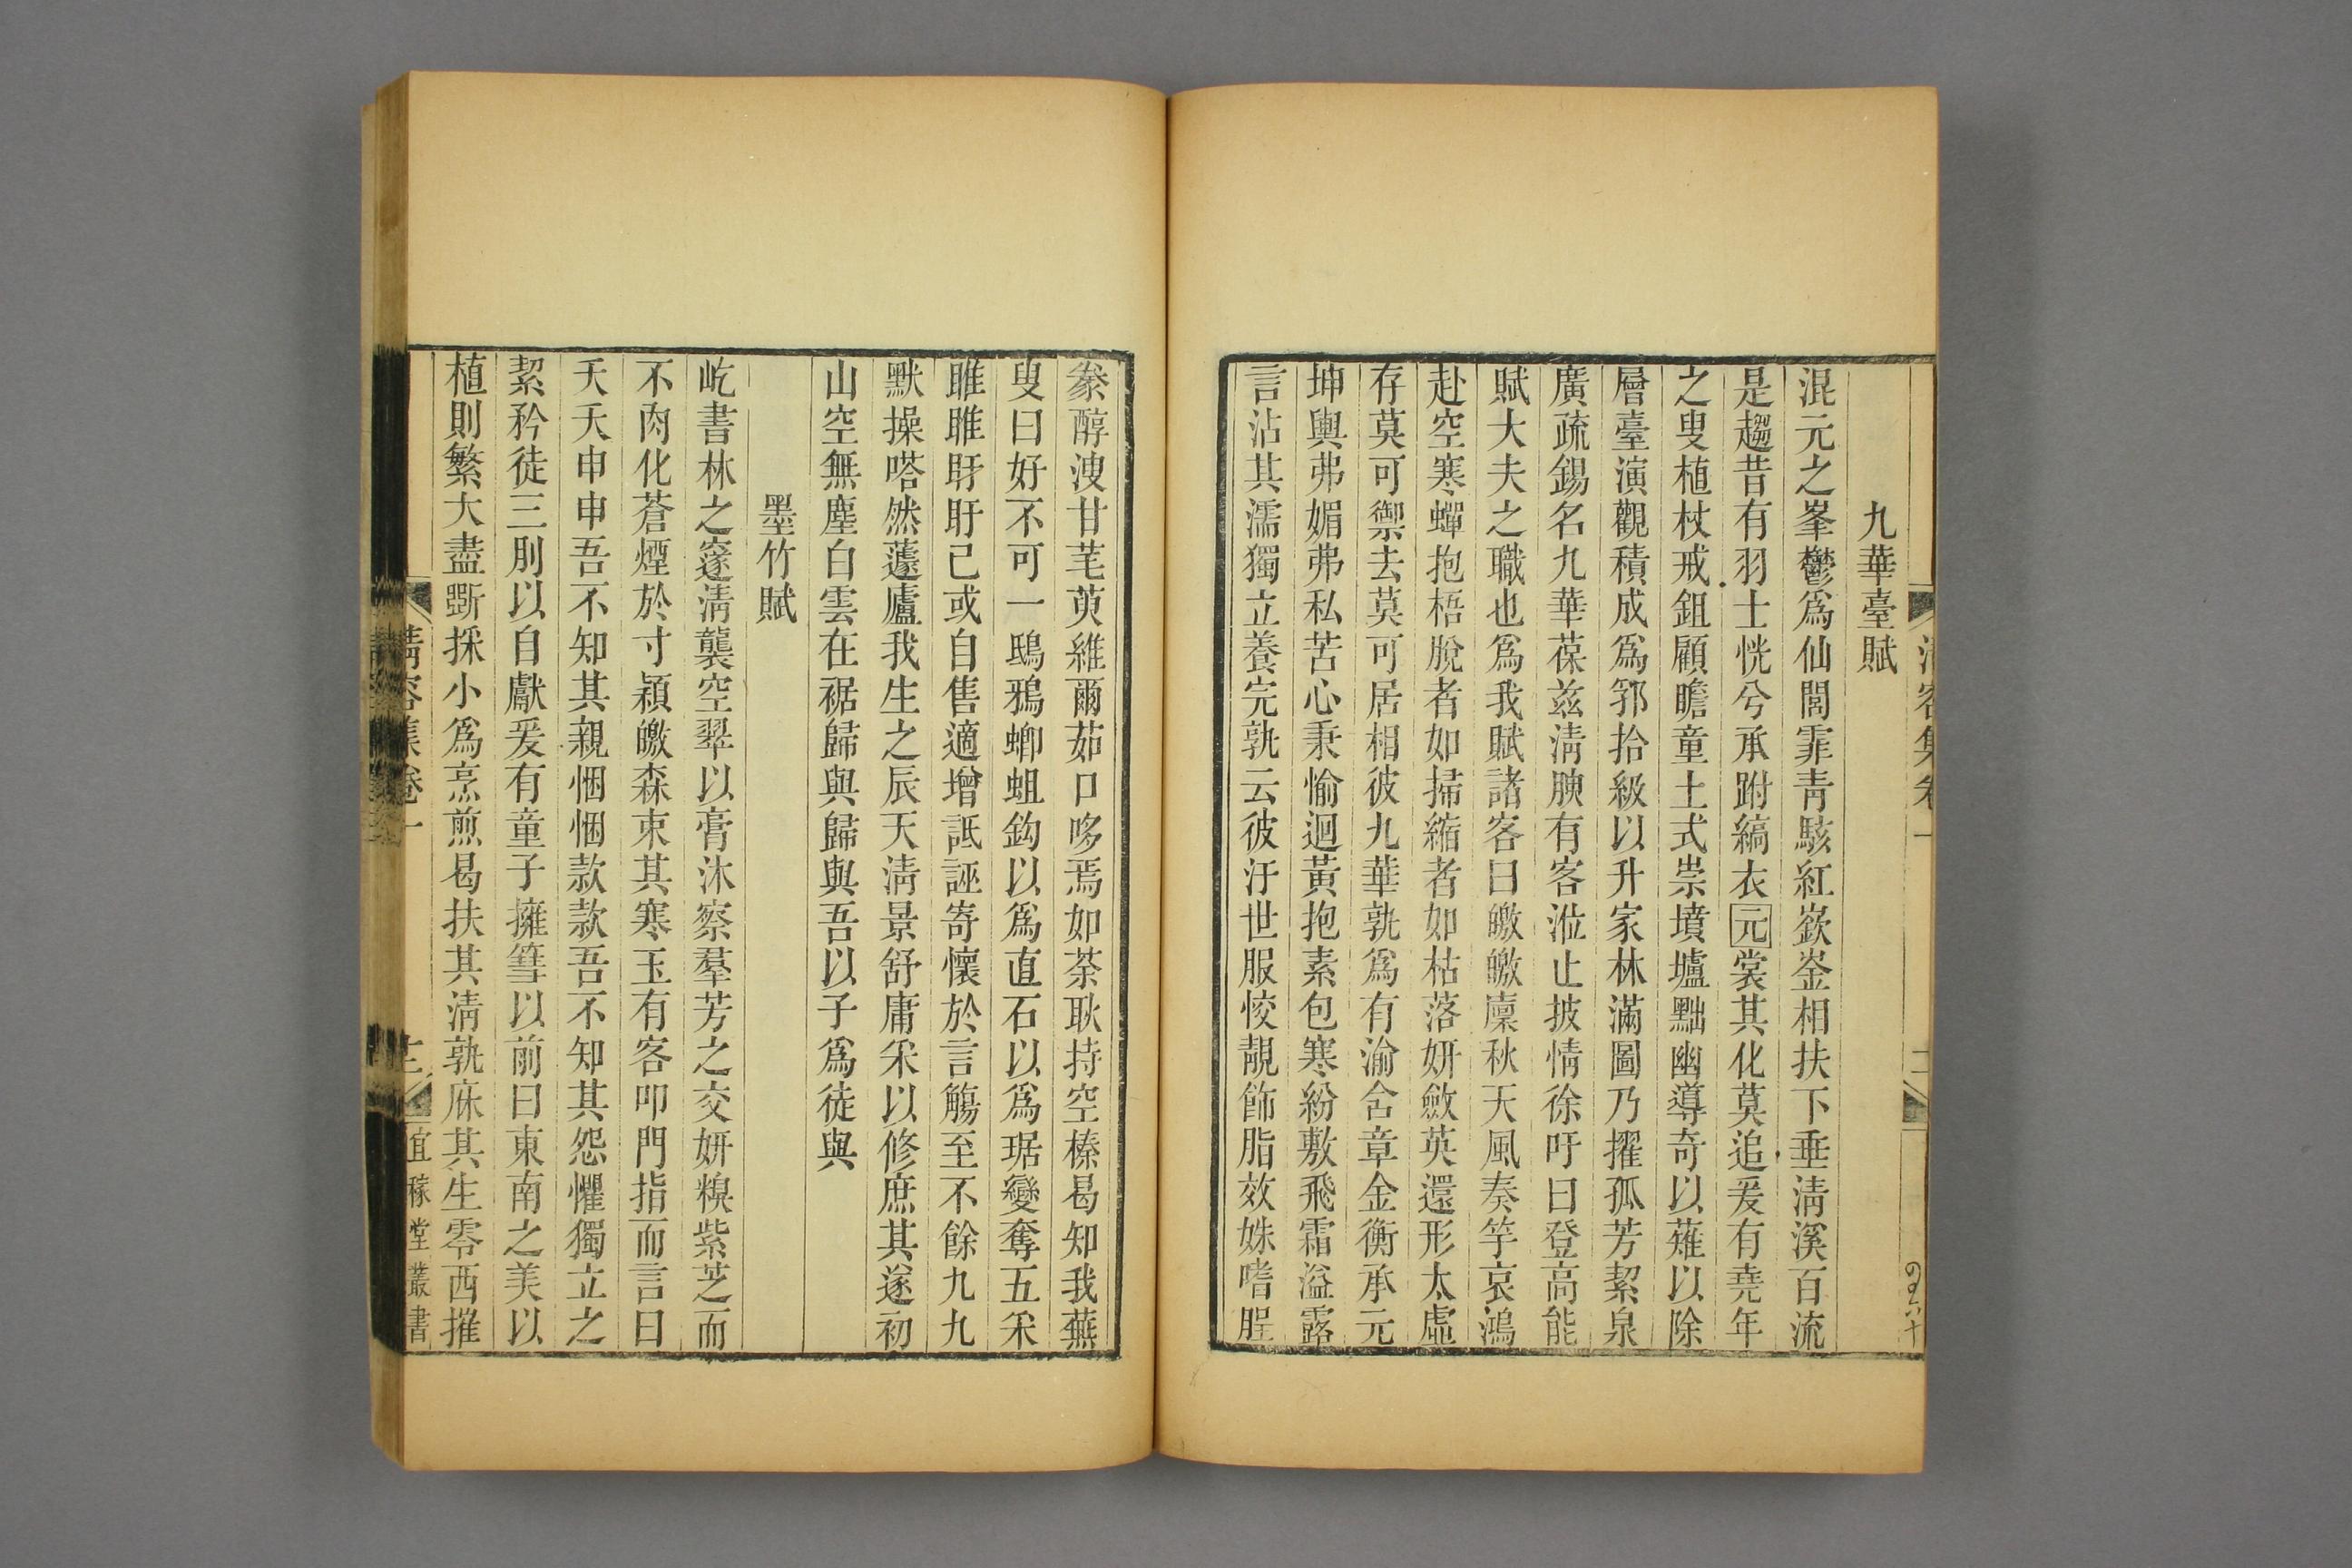 清容集卷一
九華臺賦
混元之峯鬱爲仙閭霏青駭紅嶔崟相扶下垂淸溪百流
是趨昔有羽士恍兮承跗縞衣元裳其化莫追爰有堯年
之叟植杖戒鉏顧瞻童土式崇墳壚黜幽導奇以薙以除
層臺演觀積成爲郛拾級以升家林滿圖乃擢孤芳絜泉
廣疏錫名九華葆兹淸腴有客涖止披情徐吁曰登高能
賦大夫之職也爲我賦諸客曰皦皦廩秋天風奏竽哀鴻
赴空寒蟬抱梧脫者如掃縮者如枯落姸斂英還形太虛
存莫可禦去莫可居相彼九華孰爲有渝含章金衡承元
坤輿弗媚弗私苦心秉愉迴黃抱素包寒紛敷飛霜溢露
言沾其濡獨立養完孰云彼汙世服恔靚飾脂效姝嗜腥
豢醇洩甘芼萸維爾茹口哆焉如荼耿持空榛曷知我蕪
叟曰好不可一鴟鴉蝍蛆鈎以爲直石以爲琚變奪五采
睢睢盱盱己或自售適增詆誣寄懷於言觴至不餘九九
默操嗒然蘧廬我生之辰天淸景舒庸采以修庶其遂初
山空無塵白雲在裾歸與歸與吾以子爲徒與
墨竹賦
屹書林之邃淸襲空翠以膏沐察羣芳之交姸糗紫芝而
不肉化蒼煙於寸穎皦森束其寒玉有客叩門指而言曰
夭夭申申吾不知其親悃悃款款吾不知其怨懼獨立之
絜矜徒三刖以自獻爰有童子擁篲以前曰東南之美以
植則繁大盡斲採小爲烹煎曷扶其淸孰庥其生零西摧
清容集卷一
宜稼堂叢書